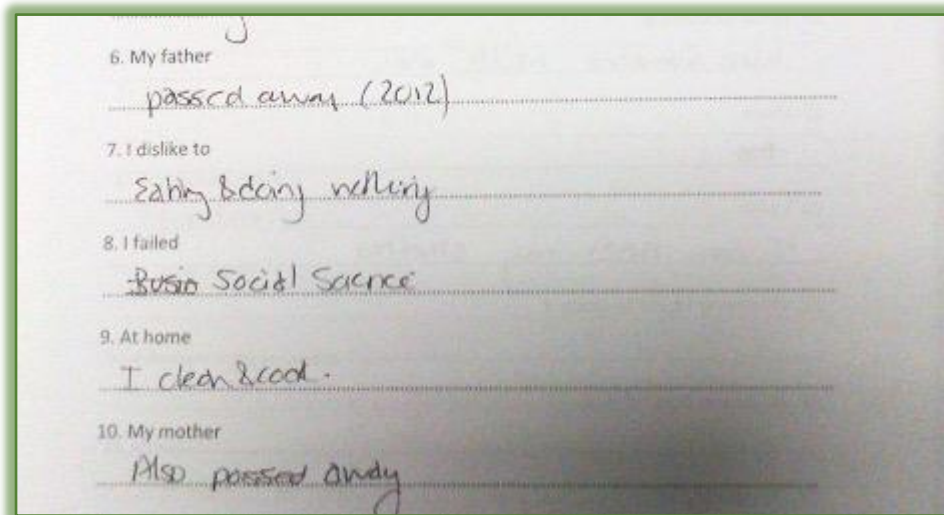 6. My father
passed away (2012)
7. I dislike to
Eating & doing nothing
8. I failed
Busin Social Sacnce
9. At home
I clean & cook.
10. My mother
Also passed away